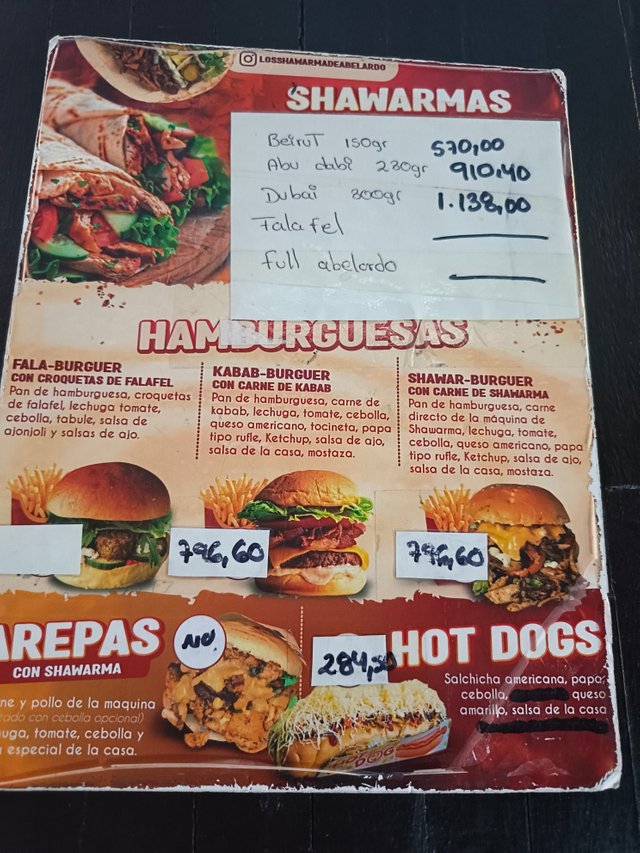 LOSSHAWARMADEABELARDO
SHAWARMAS
Beirut 150gr 570,00
Abu dabi 230gr 910,40
Dubai 300gr 1.138,00
Falafel
Full abelardo
HAMBURGUESAS
FALA-BURGUER
CON CROQUETAS DE FALAFEL
Pan de hamburguesa, croquetas
de falafel, lechuga tomate,
cebolla, tabule, salsa de
ajonjoli y salsas de ajo.
KABAB-BURGUER
CON CARNE DE KABAB
Pan de hamburguesa, carne de
kabab, lechuga, tomate, cebolla,
queso americano, tocineta, papa
tipo rufle, Ketchup, salsa de ajo,
salsa de la casa, mostaza.
SHAWAR-BURGUER
CON CARNE DE SHAWARMA
Pan de hamburguesa, carne
directo de la máquina de
Shawarma, lechuga, tomate,
cebolla, queso americano, papa
tipo rufle, Ketchup, salsa de ajo,
salsa de la casa, mostaza.
796,60
796,60
AREPAS
CON SHAWARMA
NO
ne y pollo de la maquina
cebolla opcional)
huga, tomate, cebolla y
especial de la casa.
284,50
HOT DOGS
Salchicha americana, papa,
cebolla, queso
amarillo, salsa de la casa